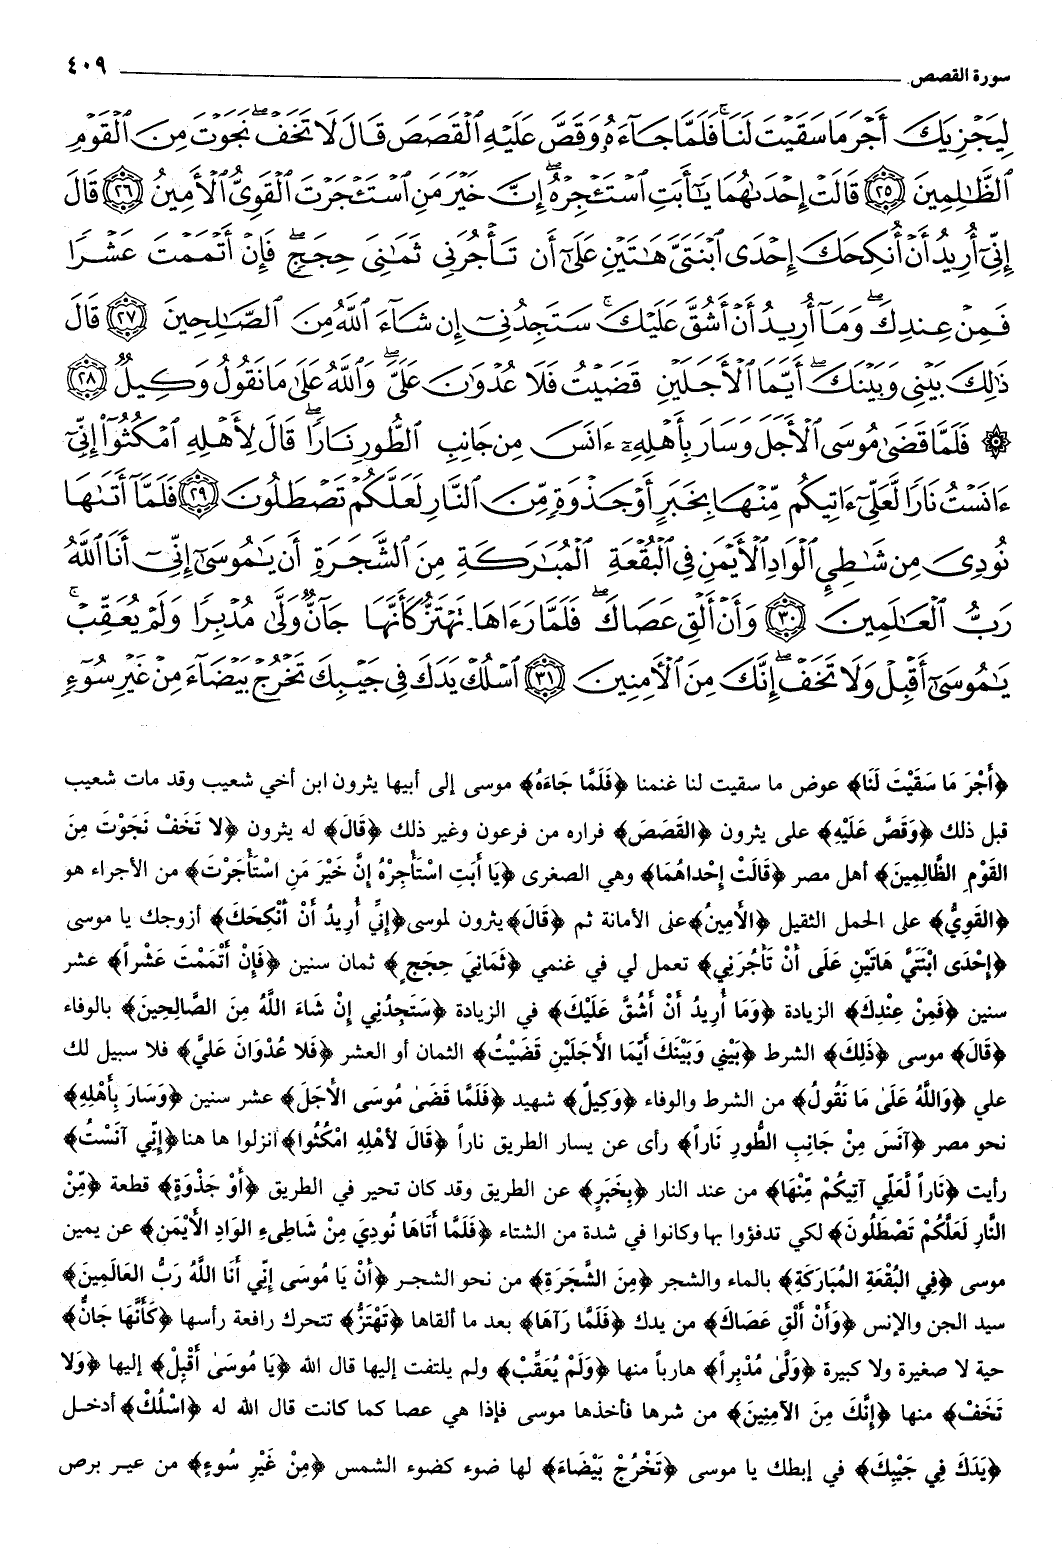 سورة القصص ٤٠٩
لِيَجْزِيَكَ أَجْرَ مَا سَقَيْتَ لَنَاۚ فَلَمَّا جَآءَهُۥ وَقَصَّ عَلَيْهِ ٱلْقَصَصَ قَالَ لَا تَخَفْۖ نَجَوْتَ مِنَ ٱلْقَوْمِ
ٱلظَّٰلِمِينَ ﴿٢٥﴾ قَالَتْ إِحْدَىٰهُمَا يَٰٓأَبَتِ ٱسْتَـْٔجِرْهُۖ إِنَّ خَيْرَ مَنِ ٱسْتَـْٔجَرْتَ ٱلْقَوِىُّ ٱلْأَمِينُ ﴿٢٦﴾ قَالَ
إِنِّىٓ أُرِيدُ أَنْ أُنكِحَكَ إِحْدَى ٱبْنَتَىَّ هَٰتَيْنِ عَلَىٰٓ أَن تَأْجُرَنِى ثَمَٰنِىَ حِجَجٍۖ فَإِنْ أَتْمَمْتَ عَشْرًا
فَمِنْ عِندِكَۖ وَمَآ أُرِيدُ أَنْ أَشُقَّ عَلَيْكَۚ سَتَجِدُنِىٓ إِن شَآءَ ٱللَّهُ مِنَ ٱلصَّٰلِحِينَ ﴿٢٧﴾ قَالَ
ذَٰلِكَ بَيْنِى وَبَيْنَكَۖ أَيَّمَا ٱلْأَجَلَيْنِ قَضَيْتُ فَلَا عُدْوَٰنَ عَلَىَّۖ وَٱللَّهُ عَلَىٰ مَا نَقُولُ وَكِيلٌ ﴿٢٨﴾
۞ فَلَمَّا قَضَىٰ مُوسَى ٱلْأَجَلَ وَسَارَ بِأَهْلِهِۦٓ ءَانَسَ مِن جَانِبِ ٱلطُّورِ نَارًاۖ قَالَ لِأَهْلِهِ ٱمْكُثُوٓا۟ إِنِّىٓ
ءَانَسْتُ نَارًا لَّعَلِّىٓ ءَاتِيكُم مِّنْهَا بِخَبَرٍ أَوْ جَذْوَةٍ مِّنَ ٱلنَّارِ لَعَلَّكُمْ تَصْطَلُونَ ﴿٢٩﴾ فَلَمَّآ أَتَىٰهَا
نُودِىَ مِن شَٰطِئِ ٱلْوَادِ ٱلْأَيْمَنِ فِى ٱلْبُقْعَةِ ٱلْمُبَٰرَكَةِ مِنَ ٱلشَّجَرَةِ أَن يَٰمُوسَىٰٓ إِنِّىٓ أَنَا ٱللَّهُ
رَبُّ ٱلْعَٰلَمِينَ ﴿٣٠﴾ وَأَنْ أَلْقِ عَصَاكَۖ فَلَمَّا رَءَاهَا تَهْتَزُّ كَأَنَّهَا جَآنٌّ وَلَّىٰ مُدْبِرًا وَلَمْ يُعَقِّبْۚ
يَٰمُوسَىٰٓ أَقْبِلْ وَلَا تَخَفْۖ إِنَّكَ مِنَ ٱلْـَٔامِنِينَ ﴿٣١﴾ ٱسْلُكْ يَدَكَ فِى جَيْبِكَ تَخْرُجْ بَيْضَآءَ مِنْ غَيْرِ سُوٓءٍ
﴿أَجْرَ مَا سَقَيْتَ لَنَا﴾ عوض ما سقيت لنا غنمنا ﴿فَلَمَّا جَاءَهُ﴾ موسى إلى أبيها يثرون ابن أخي شعيب وقد مات شعيب
قبل ذلك ﴿وَقَصَّ عَلَيْهِ﴾ على يثرون ﴿القَصَصَ﴾ فراره من فرعون وغير ذلك ﴿قَالَ﴾ له يثرون ﴿لا تَخَفْ نَجَوْتَ مِنَ
القَوْمِ الظَّالِمِينَ﴾ أهل مصر ﴿قَالَتْ إِحْدَاهُمَا﴾ وهي الصغرى ﴿يَا أَبَتِ اسْتَأْجِرْهُ إِنَّ خَيْرَ مَنِ اسْتَأْجَرْتَ﴾ من الأجراء هو
﴿القَوِيُّ﴾ على الحمل الثقيل ﴿الأَمِينُ﴾ على الأمانة ثم ﴿قَالَ﴾ يثرون لموسى ﴿إِنِّي أُرِيدُ أَنْ أُنْكِحَكَ﴾ أزوجك يا موسى
﴿إِحْدَى ابْنَتَيَّ هَاتَيْنِ عَلَى أَنْ تَأْجُرَنِي﴾ تعمل لي في غنمي ﴿ثَمَانِيَ حِجَجٍ﴾ ثمان سنين ﴿فَإِنْ أَتْمَمْتَ عَشْراً﴾ عشر
سنين ﴿فَمِنْ عِنْدِكَ﴾ الزيادة ﴿وَمَا أُرِيدُ أَنْ أَشُقَّ عَلَيْكَ﴾ في الزيادة ﴿سَتَجِدُنِي إِنْ شَاءَ اللَّهُ مِنَ الصَّالِحِينَ﴾ بالوفاء
﴿قَالَ﴾ موسى ﴿ذَلِكَ﴾ الشرط ﴿بَيْنِي وَبَيْنَكَ أَيَّمَا الأَجَلَيْنِ قَضَيْتُ﴾ الثمان أو العشر ﴿فَلا عُدْوَانَ عَلَيَّ﴾ فلا سبيل لك
علي ﴿وَاللَّهُ عَلَى مَا نَقُولُ﴾ من الشرط والوفاء ﴿وَكِيلٌ﴾ شهيد ﴿فَلَمَّا قَضَى مُوسَى الأَجَلَ﴾ عشر سنين ﴿وَسَارَ بِأَهْلِهِ﴾
نحو مصر ﴿آنَسَ مِنْ جَانِبِ الطُّورِ نَاراً﴾ رأى عن يسار الطريق ناراً ﴿قَالَ لأَهْلِهِ امْكُثُوا﴾ انزلوا ها هنا ﴿إِنِّي آنَسْتُ﴾
رأيت ﴿نَاراً لَّعَلِّي آتِيكُمْ مِّنْهَا﴾ من عند النار ﴿بِخَبَرٍ﴾ عن الطريق وقد كان تحير في الطريق ﴿أَوْ جَذْوَةٍ﴾ قطعة ﴿مِّنَ
النَّارِ لَعَلَّكُمْ تَصْطَلُونَ﴾ لكي تدفؤوا بها وكانوا في شدة من الشتاء ﴿فَلَمَّا أَتَاهَا نُودِيَ مِنْ شَاطِىءِ الوَادِ الأَيْمَنِ﴾ عن يمين
موسى ﴿فِي البُقْعَةِ المُبَارَكَةِ﴾ بالماء والشجر ﴿مِنَ الشَّجَرَةِ﴾ من نحو الشجر ﴿أَنْ يَا مُوسَى إِنِّي أَنَا اللَّهُ رَبُّ العَالَمِينَ﴾
سيد الجن والإنس ﴿وَأَنْ أَلْقِ عَصَاكَ﴾ من يدك ﴿فَلَمَّا رَآهَا﴾ بعد ما ألقاها ﴿تَهْتَزُّ﴾ تتحرك رافعة رأسها ﴿كَأَنَّهَا جَانٌّ﴾
حية لا صغيرة ولا كبيرة ﴿وَلَّى مُدْبِراً﴾ هارباً منها ﴿وَلَمْ يُعَقِّبْ﴾ ولم يلتفت إليها قال الله ﴿يَا مُوسَى أَقْبِلْ﴾ إليها ﴿وَلا
تَخَفْ﴾ منها ﴿إِنَّكَ مِنَ الآمِنِينَ﴾ من شرها فأخذها موسى فإذا هي عصا كما كانت قال الله له ﴿اسْلُكْ﴾ أدخل
﴿يَدَكَ فِي جَيْبِكَ﴾ في إبطك يا موسى ﴿تَخْرُجْ بَيْضَاءَ﴾ لها ضوء كضوء الشمس ﴿مِنْ غَيْرِ سُوءٍ﴾ من عير برص